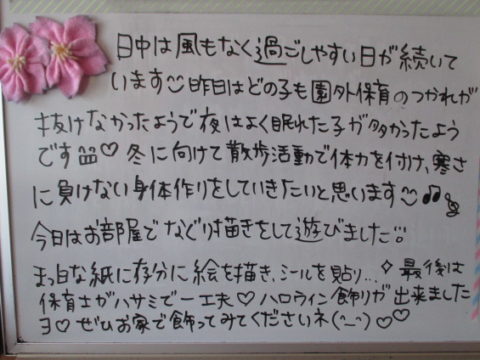 日中は風もなく過ごしやすい日が続いて
います 昨日はどの子も園外保育のつかれが
抜けなかったようで夜はよく眠れた子が多かったよう
です♡ 冬に向けて散歩活動で体力を付け、寒さ
に負けない身体作りをしていきたいと思います♪♫
今日はお部屋でなぐり描きをして遊びました!!
まっ白な紙に存分に絵を描き、シールを貼り...✧ 最後は
保育士がハサミで一工夫♡ ハロウィン飾りが出来ました
ヨ♡ ぜひお家で飾ってみてくださいネ(^_^)♡♡